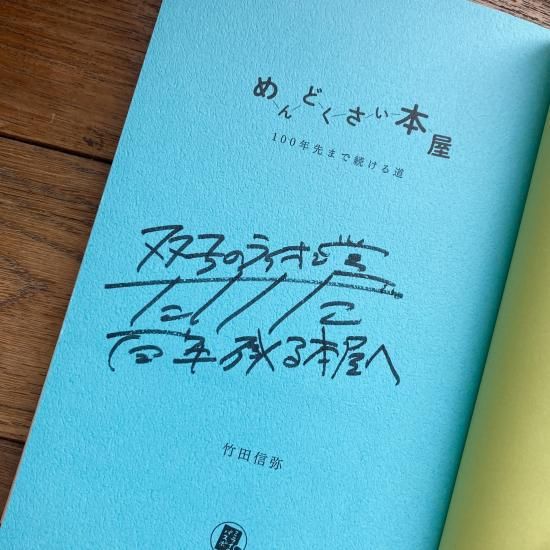 めんどくさい本屋
100年先まで続ける道
双子のライオン堂
百年残る本屋へ
竹田信弥